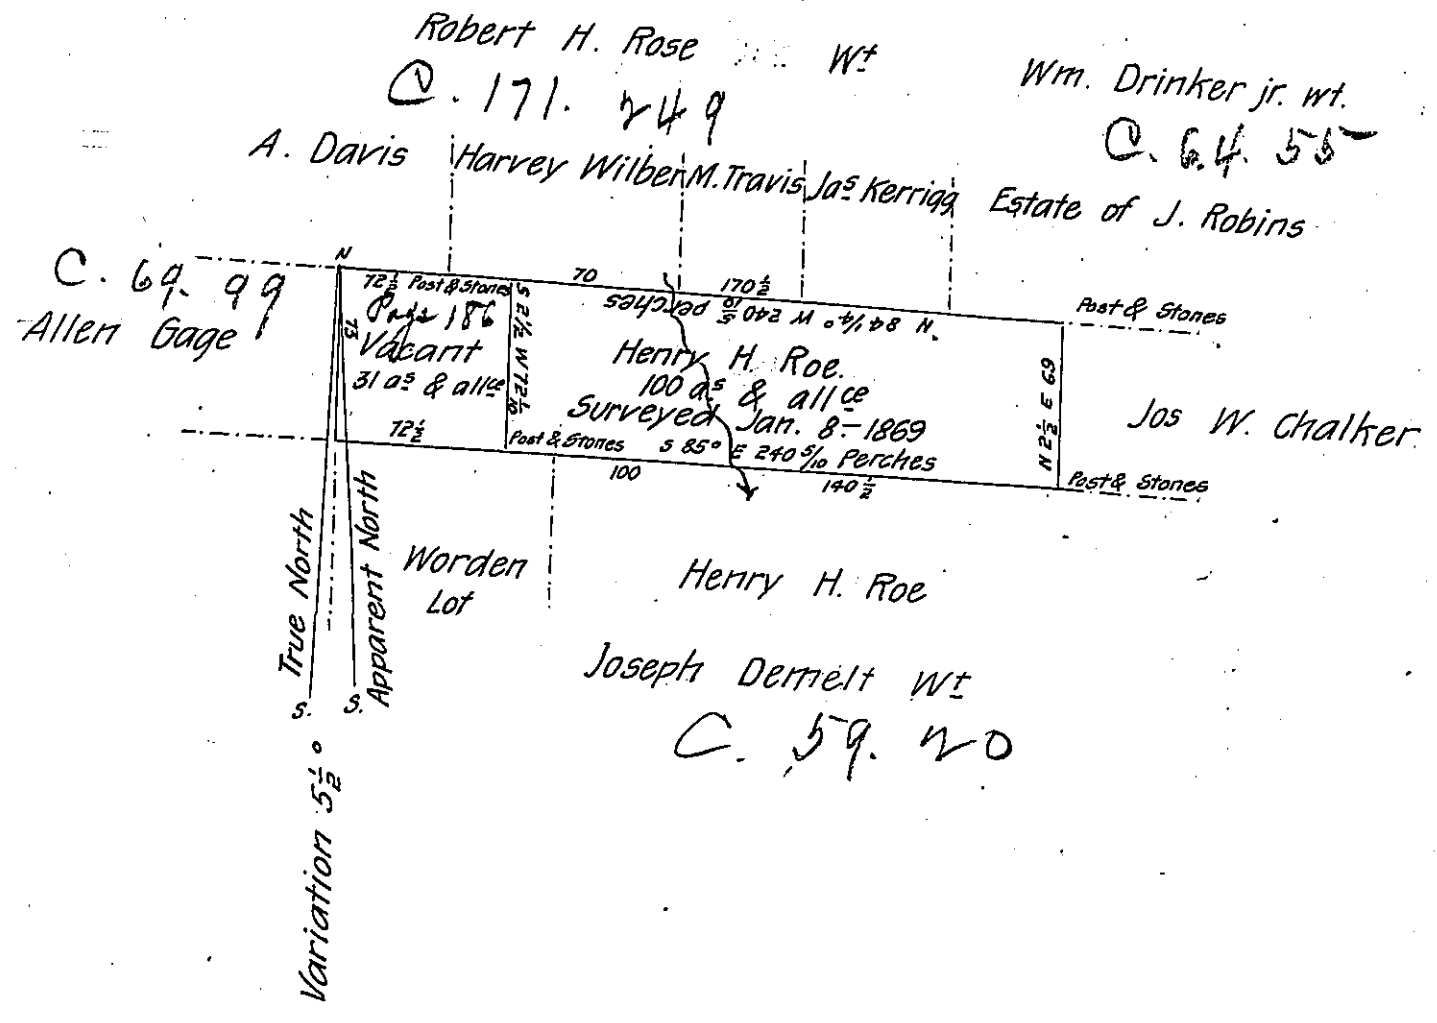 Robert H. Rose Wt
C. 171. 249
Wm. Drinker jr. wt.
C. 64. 55
A. Davis
Harvey Wilber
M. Travis
Jas Kerrigg
Estate of J. Robins
C. 69. 99
Allen Gage
N
72 1/2 Post & Stones
70
170 1/2
Post & Stones
N 84 1/4° W 240 5/10 perches
Page 186
Vacant
31 as & allce
73
S 2 1/2 W 72 1/2
Henry H. Roe.
100 as & allce
Surveyed Jan. 8 - 1869
N 2 1/2 E 69
Jos W. Chalker
72 1/2
Post & Stones
S 85° E 240 5/10 Perches
Post & Stones
100
140 1/2
True North
S.
Apparent North
S.
Worden
Lot
Henry H. Roe
Joseph Demelt Wt
C. 59. 20
Variation 5 1/2°